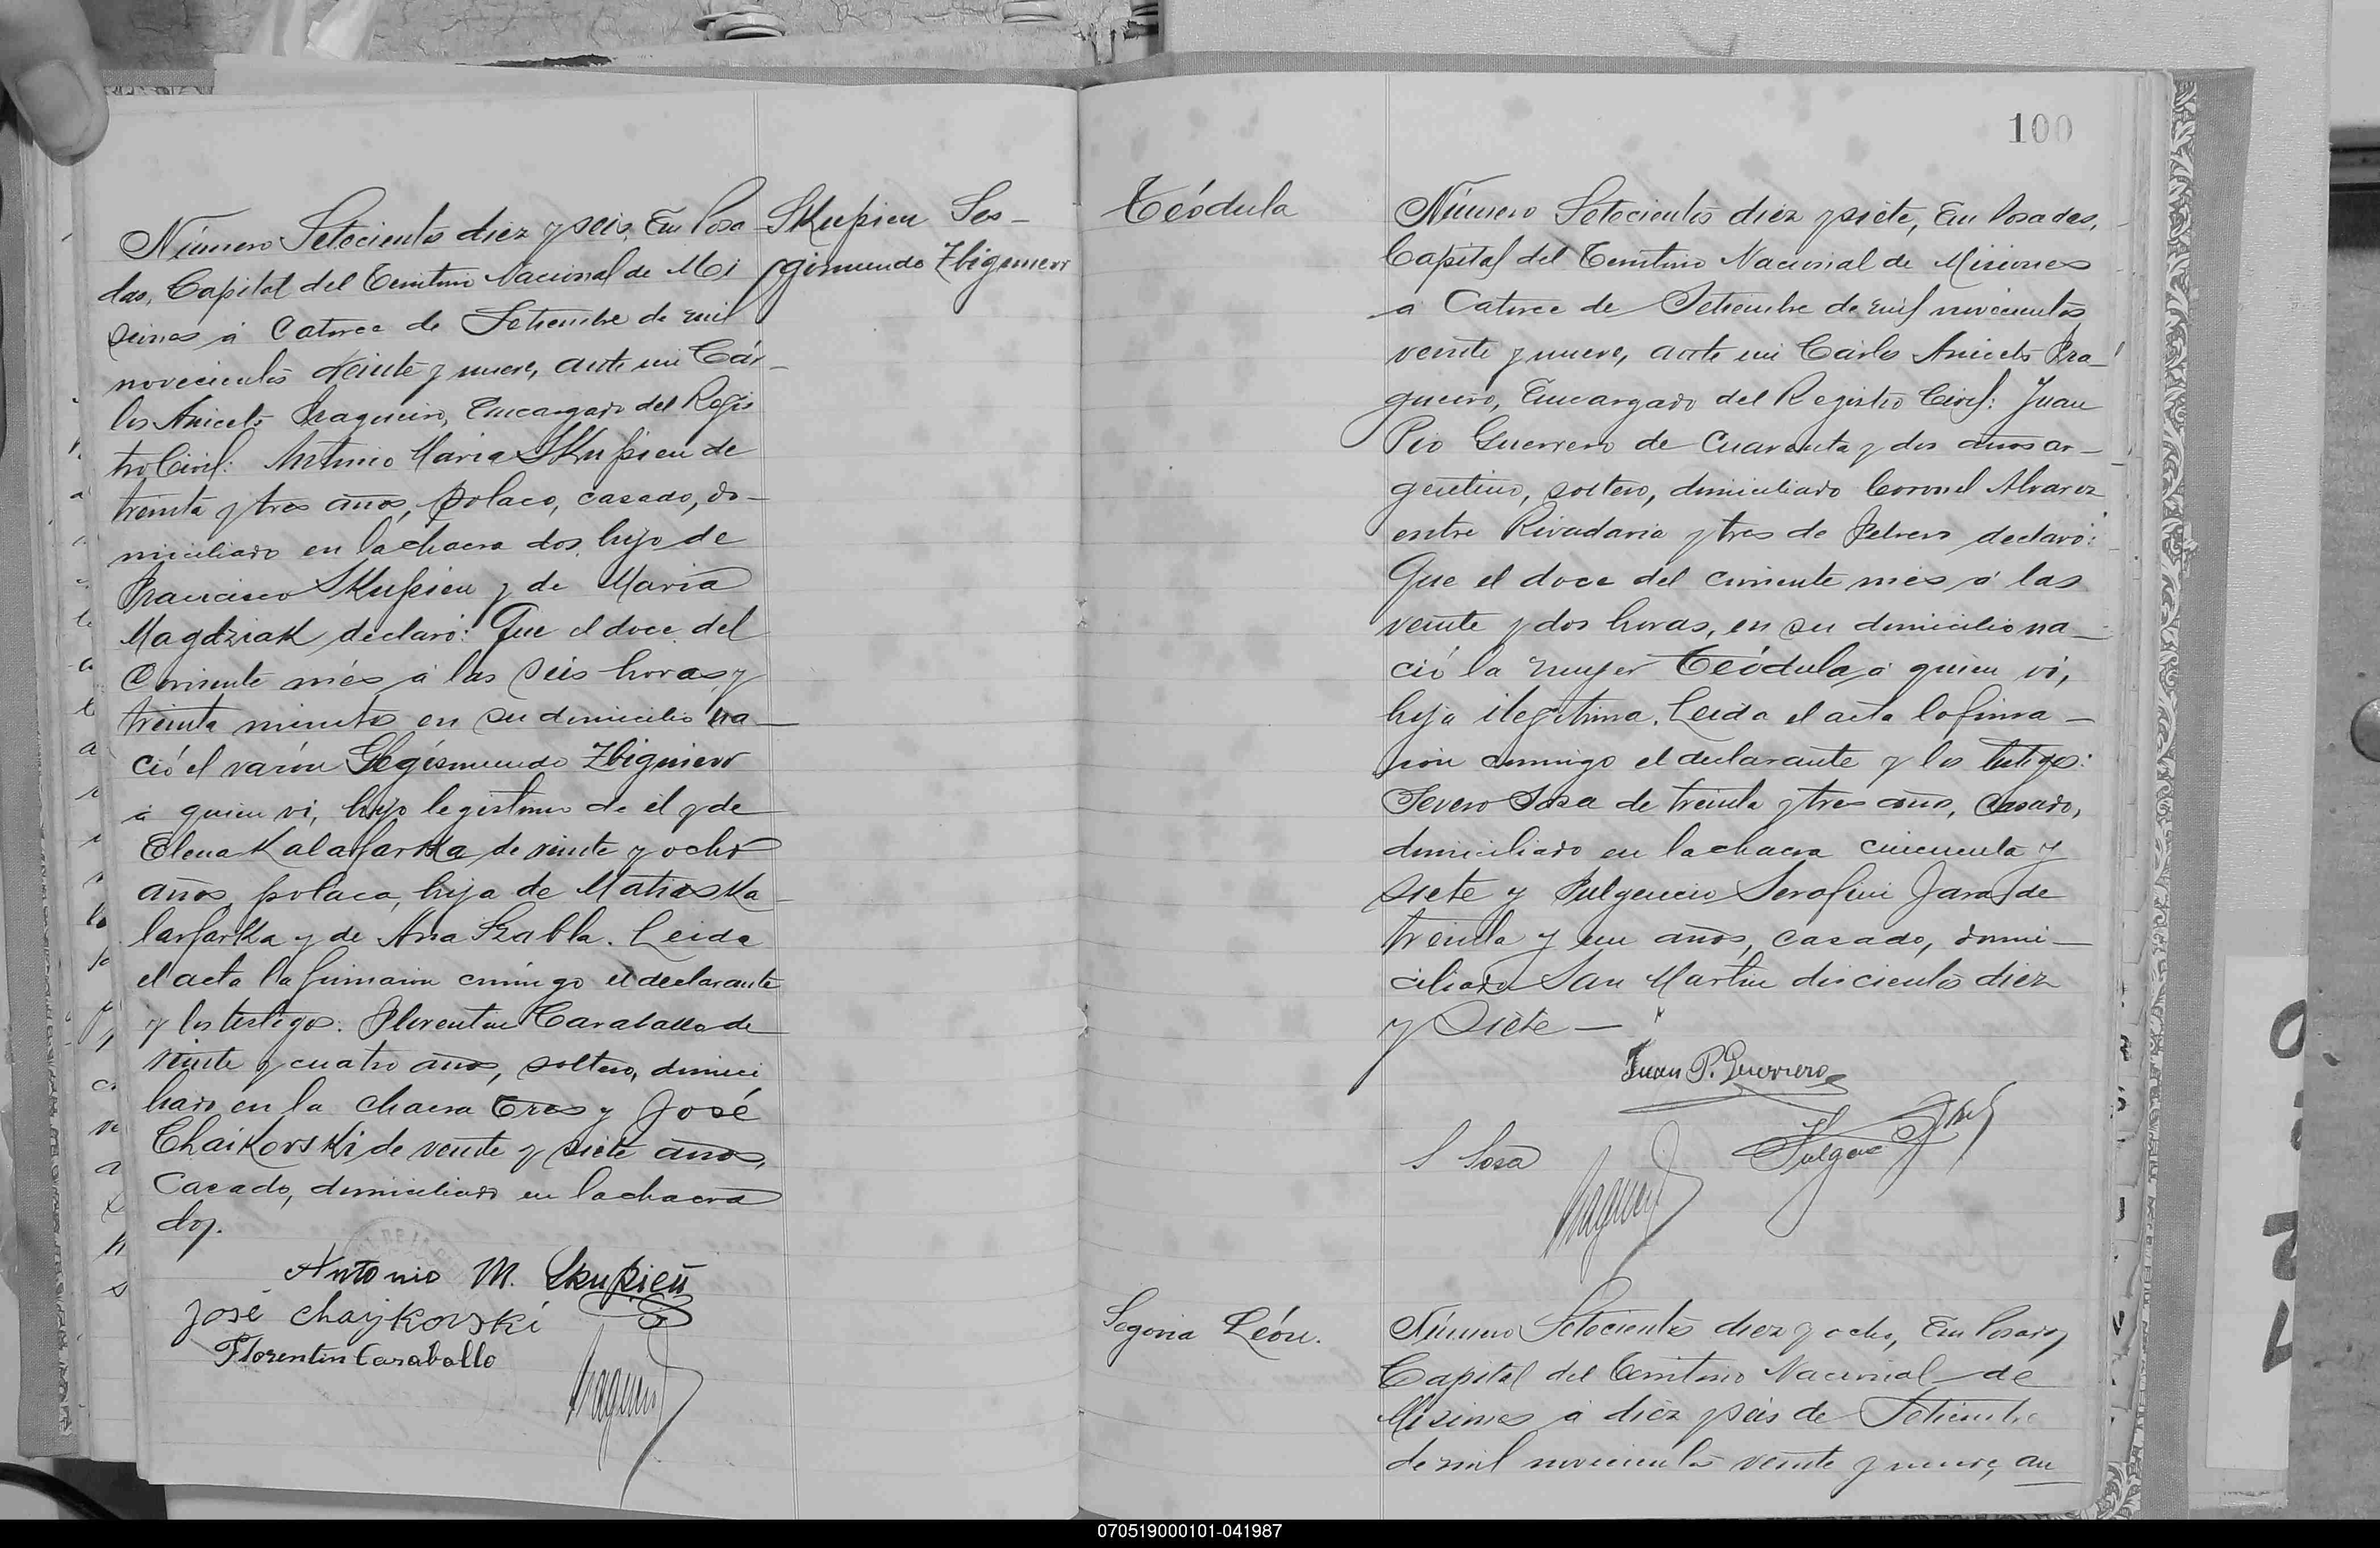 Número Setecientos diez y seis, En Posa
das, Capital del Territorio Nacional de Mi
siones á Catorce de Setiembre de mil
novecientos veinte y nueve, ante mi Cár-
los Aniceto Fragueiro, Encargado del Regis
tro Civil: Antonio Maria Skupien de
treinta y tres años, polaco, casado, do-
miciliado en la chacra dos, hijo de
Francisco Skupien y de Maria
Magdziak declaró: Que el doce del
Corriente més á las seis horas y
treinta minutos en su domicilio na-
ció el varón Segismundo Zbigniew
á quien vi, hijo legitimo de él y de
Elena Kalafarska de veinte y ocho
años, polaca, hija de Matias Ka-
larfarka y de Ana Szabla. Leida
el acta la firmaron conmigo el declarante
y los testigos: Florentin Caraballo de
veinte y cuatro años, soltero, domici
liado en la chacra tres y José
Chaikovski de veinte y siete años,
Casado, domiciliado en la chacra
dos.
Antonio M. Skupień
José Chaykovski
Florentin Caraballo
Skupien Ses-
gismundo Zbigniew
100
Teódula
Número Setecientos diez y siete, En Posadas,
Capital del Territorio Nacional de Misiones
a Catorce de Setiembre de mil novecientos
veinte y nueve, ante mi Cárlos Aniceto Fra-
gueiro, Encargado del Registro Civil: Juan
Pio Guerrero de cuarenta y dos años ar-
gentino, soltero, domiciliado Coronel Alvarez
entre Rivadavia y tres de Febrero declaró:
Que el doce del corriente més á las
veinte y dos horas, en su domicilio na-
ció la mujer Teódula á quien vi,
hija ilegitima. Leida el acta la firma-
ron conmigo el declarante y los testigos:
Severo Sosa de treinta y tres años, casado,
domiciliado en la chacra cincuenta y
siete y Fulgencio Serafin Jara de
treinta y un años, casado, domi-
ciliado San Martin doscientos diez
y siete —
Juan P. Guerrero
S Sosa
Segovia León.
Número Setecientos diez y ocho, En Posadas
Capital del Territorio Nacional de
Misiones á diez y seis de Setiembre
de mil novecientos veinte y nueve, an
070519000101-041987